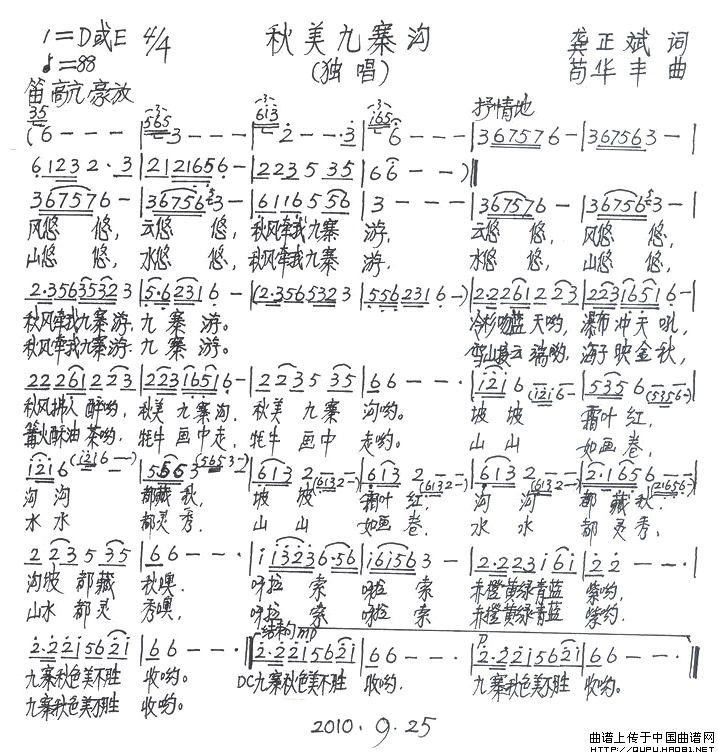 1=D或E 4/4 秋美九寨沟 龚正斌 词
♩=88 (独唱) 苟华丰 曲
笛 高亢 豪放 抒情地
(6 - - - 3 - - - 2 - - · 3 6 - - - | 3 6 7 5 7 6 - | 3 6 7 5 6 3 - |
6 1 2 3 2 · 3 | 2 1 2 1 6 5 6 - | 2 2 3 5 3 5 | 6 6 - - )
3 6 7 5 7 6 - | 3 6 7 5 6 3 - | 6 1 1 6 5 5 6 | 3 - - - | 3 6 7 5 7 6 - | 3 6 7 5 6 3 - |
风悠 悠, 云悠 悠, 秋风牵我九寨 游, 云悠 悠, 风悠 悠,
山悠 悠, 水悠 悠, 秋风牵我九寨 游, 水悠 悠, 山悠 悠,
2·3 5 6 3 5 3 2 3 | 5·6 2 3 1 6 - | (2·3 5 6 5 3 2 3 | 5 5 6 2 3 1 6 -) | 2·2 2 6 1 2 2 3 | 2 2 3 1 6 5 1 6 - |
秋风牵我九寨游, 九 寨 游。 冷杉吻蓝天哟, 瀑布冲天吼,
秋风牵我九寨游, 九 寨 游。 雪山云端哟, 海子映金秋,
2 2 2 6 1 2 2 3 | 2 2 3 1 6 5 1 6 - | 2 2 3 5 3 5 | 6 6 - - · | 1 2 1 6 (1 2 1 6 - | 5 3 5 6 (5 3 5 6 -) |
秋风拂人醉哟, 秋美 九寨沟, 秋美 九寨 沟哟。 坡 坡 霜叶红,
篝火酥油茶哟, 牦牛 画中走, 牦牛 画中 走哟。 山 山 如画卷,
1 2 1 6 (1 2 1 6 - - | 5 5 6 3 (5 6 5 3 - | 6 1 3 2 (6 1 3 2 -) | 6 1 3 2 (6 1 3 2 -) | 6 1 3 2 (6 1 3 2 -) | 2·1 6 5 6 (2 1 6 5 6 -) |
沟 沟 都藏 秋, 坡 坡 霜叶 红, 沟 沟 都 藏秋,
水 水 都灵 秀, 山 山 如画 卷, 水 水 都 灵秀,
2 2 3 5 3 5 | 6 6 - - · | 1 1 3 2 3 6·5 6 | 1 6 1 5 6 3 - | 2·2 2 3 1 6 1 | 2 2 - - · |
沟坡 都藏 秋噢, 呀拉 索 啦 索 赤橙黄绿青蓝 紫哟,
山水 都灵 秀噢, 呀拉 索 啦 索 赤橙黄绿青蓝 紫哟,
结构
2·2 2 1 5 6 2 1 | 6 6 - - · | 2·2 2 1 5 6 2 1 | 6 6 - - · | 2·2 2 1 5 6 2 1 | 6 6 - - ·
九寨秋色美不胜 收哟。 DC九寨秋色美不胜 收哟。 九寨秋色美不胜 收哟。
九寨秋色美不胜 收哟。
2010.9.25
曲谱上传于中国曲谱网
HTTP://QUPU.HAO81.NET